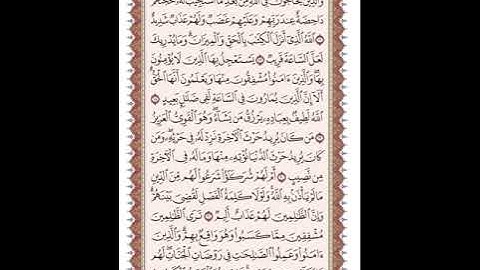 وَٱلَّذِينَ يُحَآجُّونَ فِي ٱللَّهِ مِنۢ بَعۡدِ مَا ٱسۡتُجِيبَ لَهُۥ حُجَّتُهُمۡ
دَاحِضَةٌ عِندَ رَبِّهِمۡ وَعَلَيۡهِمۡ غَضَبٞ وَلَهُمۡ عَذَابٞ شَدِيدٌ
ٱللَّهُ ٱلَّذِيٓ أَنزَلَ ٱلۡكِتَٰبَ بِٱلۡحَقِّ وَٱلۡمِيزَانَۗ وَمَا يُدۡرِيكَ
لَعَلَّ ٱلسَّاعَةَ قَرِيبٞ يَسۡتَعۡجِلُ بِهَا ٱلَّذِينَ لَا يُؤۡمِنُونَ
بِهَاۖ وَٱلَّذِينَ ءَامَنُواْ مُشۡفِقُونَ مِنۡهَا وَيَعۡلَمُونَ أَنَّهَا ٱلۡحَقُّۗ
أَلَآ إِنَّ ٱلَّذِينَ يُمَارُونَ فِي ٱلسَّاعَةِ لَفِي ضَلَٰلِۭ بَعِيدٍ
ٱللَّهُ لَطِيفُۢ بِعِبَادِهِۦ يَرۡزُقُ مَن يَشَآءُۖ وَهُوَ ٱلۡقَوِيُّ ٱلۡعَزِيزُ
مَن كَانَ يُرِيدُ حَرۡثَ ٱلۡأٓخِرَةِ نَزِدۡ لَهُۥ فِي حَرۡثِهِۦۖ وَمَن
كَانَ يُرِيدُ حَرۡثَ ٱلدُّنۡيَا نُؤۡتِهِۦ مِنۡهَا وَمَا لَهُۥ فِي ٱلۡأٓخِرَةِ
مِن نَّصِيبٍ أَمۡ لَهُمۡ شُرَكَٰٓؤُاْ شَرَعُواْ لَهُم مِّنَ ٱلدِّينِ
مَا لَمۡ يَأۡذَنۢ بِهِ ٱللَّهُۚ وَلَوۡلَا كَلِمَةُ ٱلۡفَصۡلِ لَقُضِيَ بَيۡنَهُمۡۗ
وَإِنَّ ٱلظَّٰلِمِينَ لَهُمۡ عَذَابٌ أَلِيمٞ تَرَى ٱلظَّٰلِمِينَ
مُشۡفِقِينَ مِمَّا كَسَبُواْ وَهُوَ وَاقِعُۢ بِهِمۡۗ وَٱلَّذِينَ
ءَامَنُواْ وَعَمِلُواْ ٱلصَّٰلِحَٰتِ فِي رَوۡضَاتِ ٱلۡجَنَّاتِۖ لَهُم